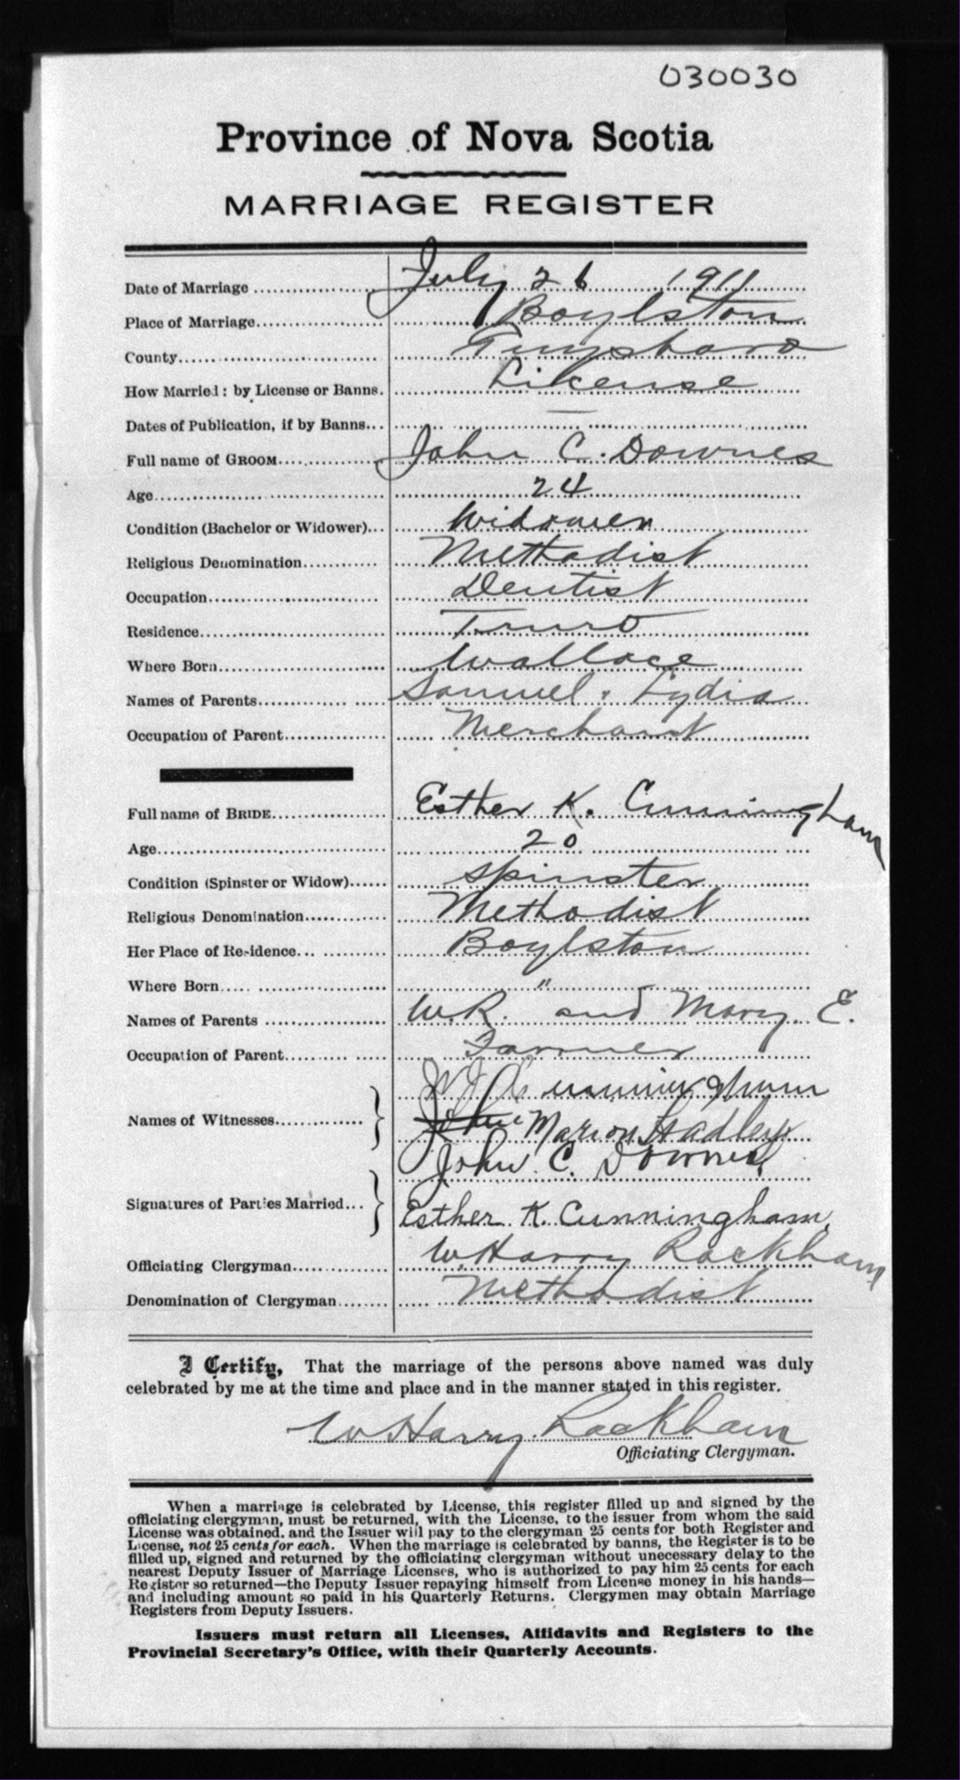 030030
Province of Nova Scotia
MARRIAGE REGISTER
Date of Marriage July 26 1911
Place of Marriage Boylston
County Guysboro
How Married: by License or Banns. License
Dates of Publication, if by Banns... —
Full name of GROOM John C. Downes
Age 24
Condition (Bachelor or Widower) Widower
Religious Denomination Methodist
Occupation Dentist
Residence Truro
Where Born Wallace
Names of Parents Samuel & Lydia
Occupation of Parent Merchant
Full name of BRIDE Esther K. Cunningham
Age 20
Condition (Spinster or Widow) Spinster
Religious Denomination Methodist
Her Place of Residence Boylston
Where Born "
Names of Parents W.R. and Mary E.
Occupation of Parent Farmer
Cunningham
Names of Witnesses John Marion Hadley
John C. Downes.
Signatures of Parties Married
Esther K. Cunningham.
Officiating Clergyman W. Harry Rackham
Denomination of Clergyman Methodist
I Certify, That the marriage of the persons above named was duly
celebrated by me at the time and place and in the manner stated in this register.
W Harry Rackham
Officiating Clergyman.
When a marriage is celebrated by License, this register filled up and signed by the
officiating clergyman, must be returned, with the License, to the issuer from whom the said
License was obtained, and the Issuer will pay to the clergyman 25 cents for both Register and
License, not 25 cents for each. When the marriage is celebrated by banns, the Register is to be
filled up, signed and returned by the officiating clergyman without unnecessary delay to the
nearest Deputy Issuer of Marriage Licenses, who is authorized to pay him 25 cents for each
Register so returned—the Deputy Issuer repaying himself from License money in his hands—
and including amount so paid in his Quarterly Returns. Clergymen may obtain Marriage
Registers from Deputy Issuers.
Issuers must return all Licenses, Affidavits and Registers to the
Provincial Secretary's Office, with their Quarterly Accounts.